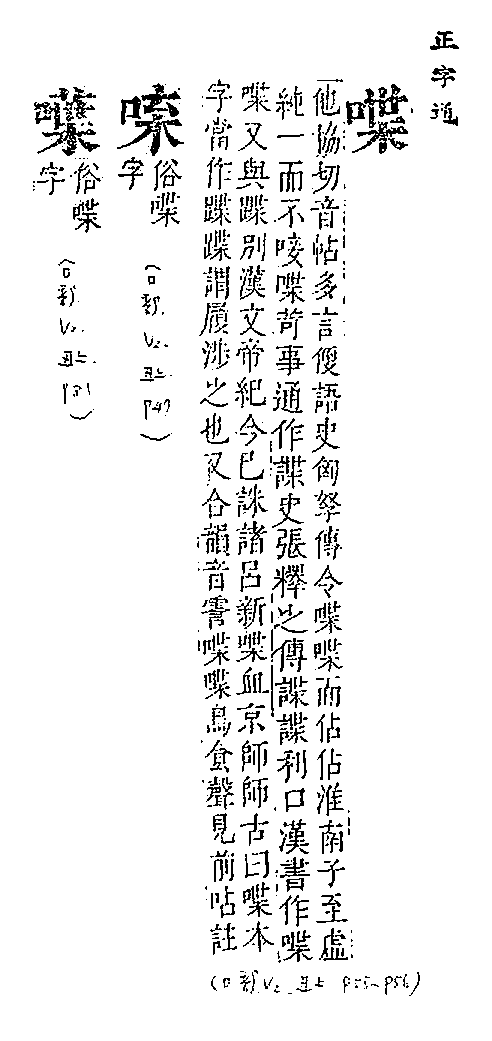 正字通
喋
他協切音帖多言便語史匈奴傳令喋喋而佔佔淮南子至虛
純一而不唼喋苛事通作諜史張釋之傳諜諜利口漢書作喋
喋又與蹀別漢文帝紀今已誅諸呂新喋血京師師古曰喋本
字當作蹀蹀謂履涉之也又合韻音霅喋喋鳥食聲見前呫註
俗喋
字
(口部 V2 丑上 P55~P56)
俗喋
字
(口部 V2 丑上 P47)
(口部 V2 丑上